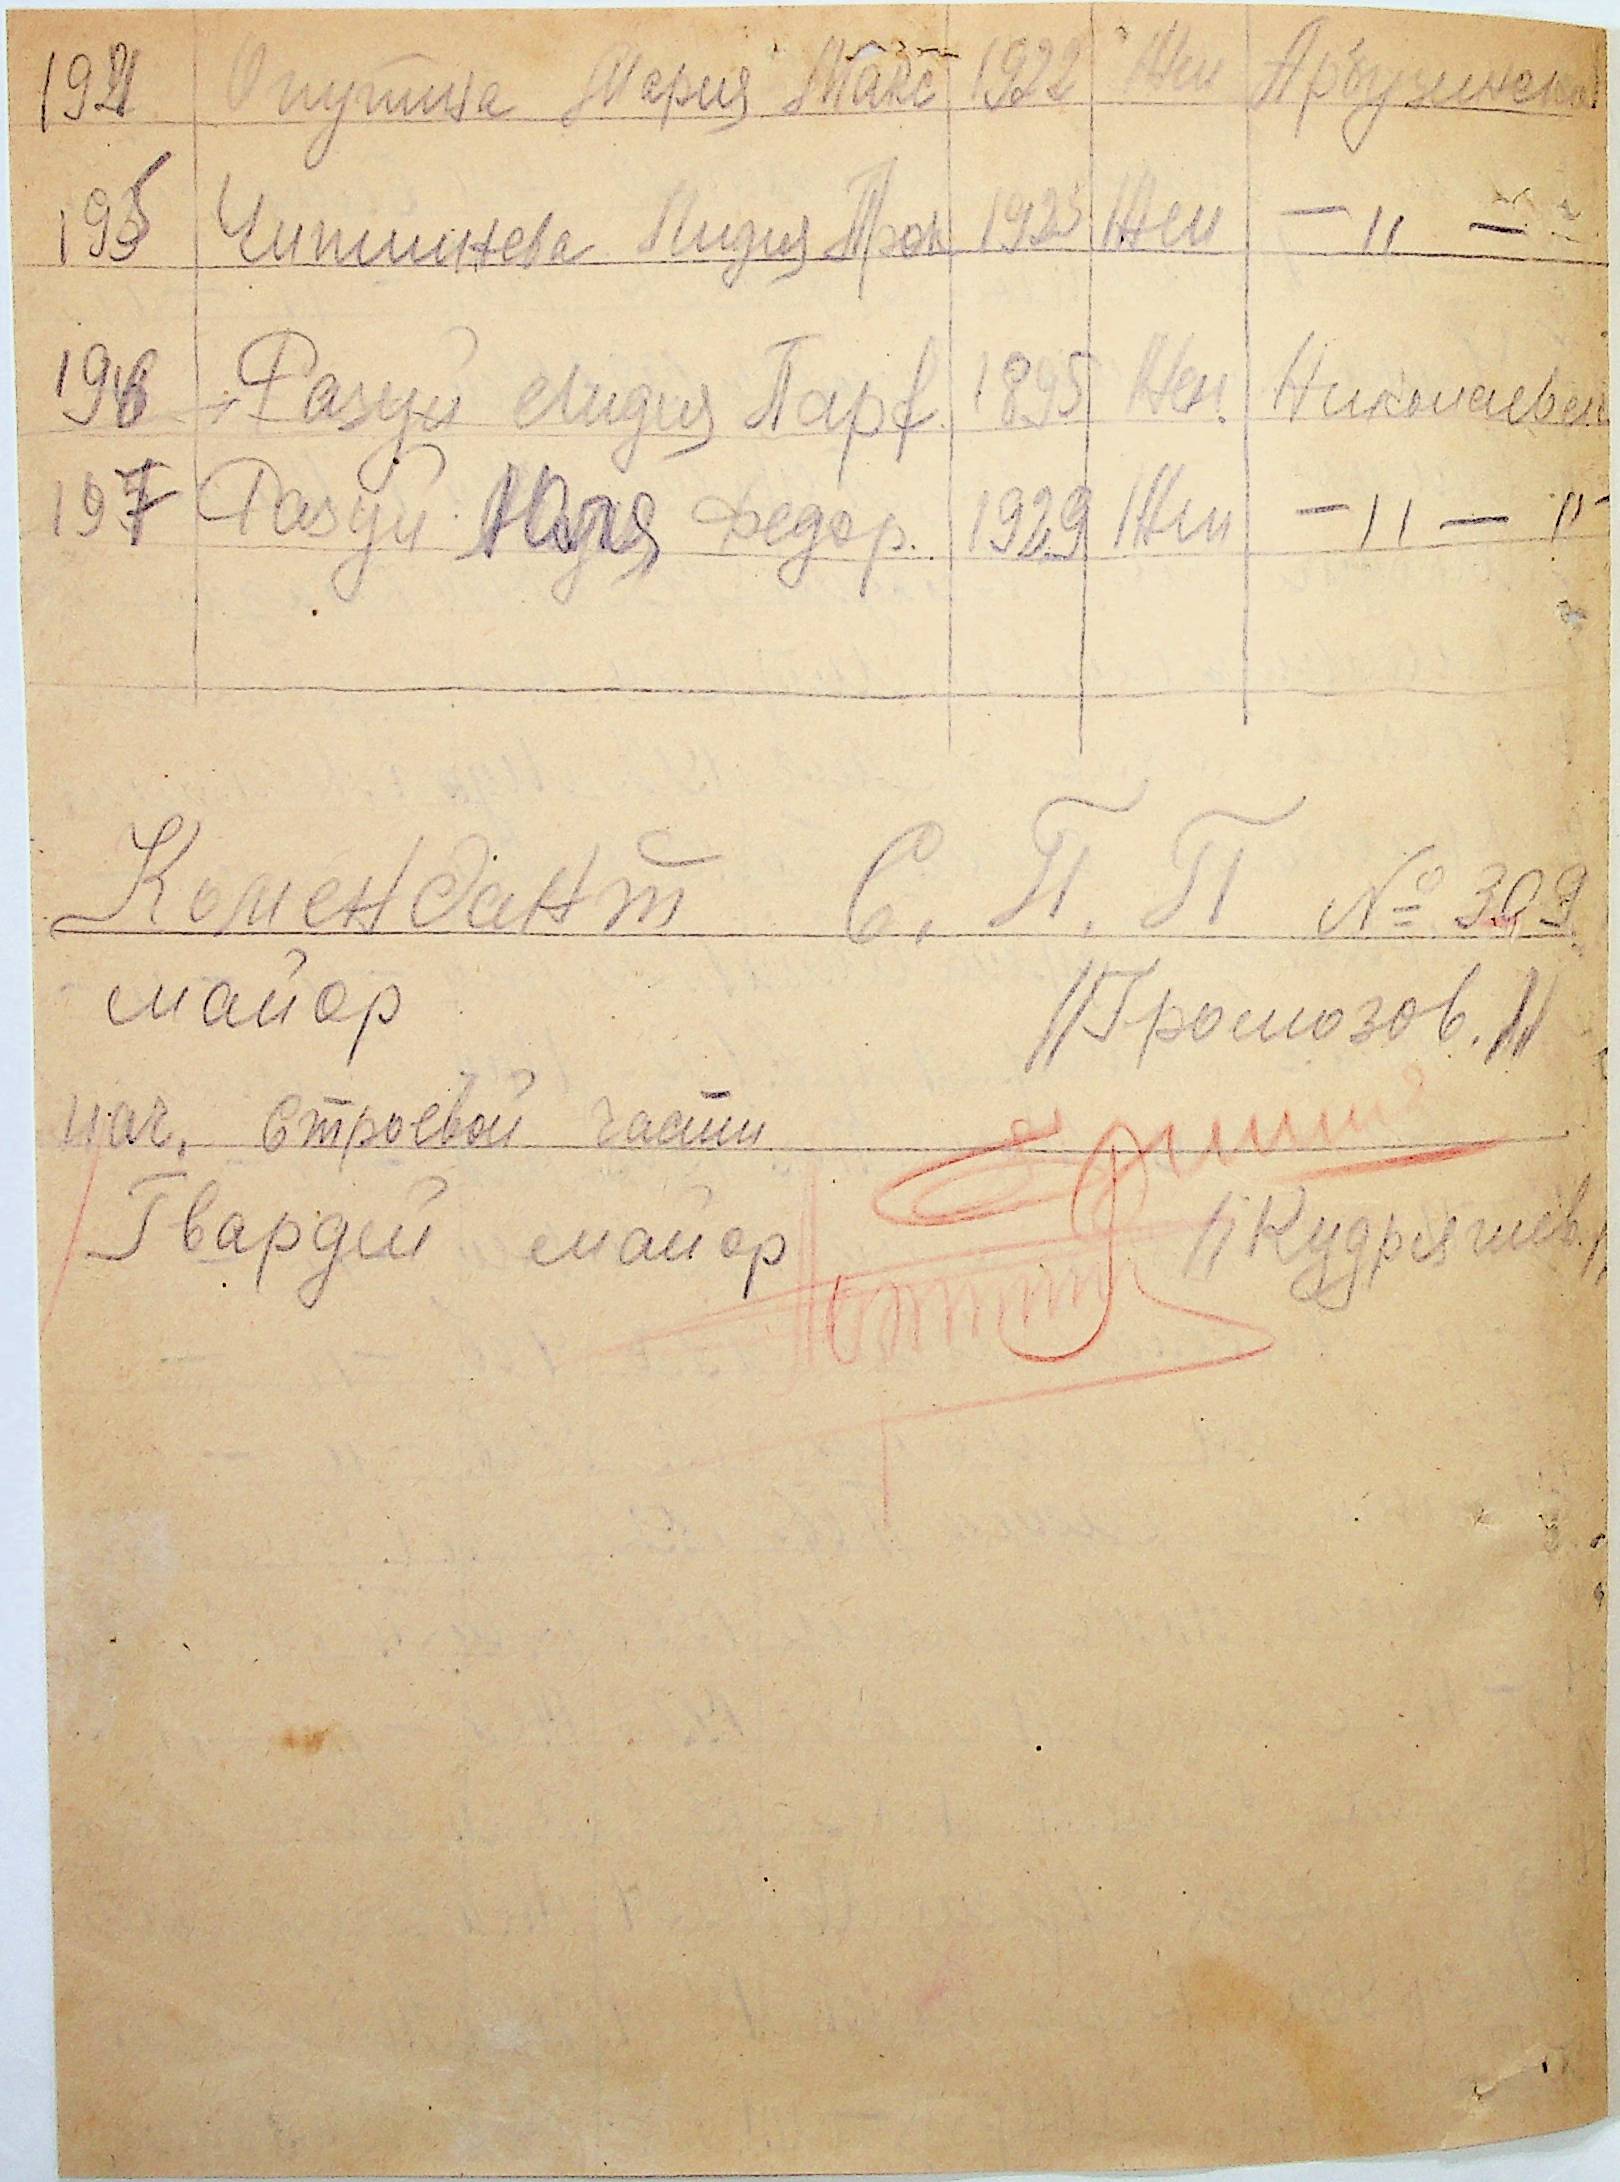 194 Опутина Мария Макс 1922 Жен Арбузинский
195 Чипишнева Лидия Троф 1923 Жен — " —
196 Разуй Лидия Парф. 1895 Жен. Николаевск
197 Разуй Юлия Федор. 1929 Жен — " — "
Комендант С. П. П № 309
майор "Громозов."
нач. строевой части
Гвардей майор "Кудряшев."